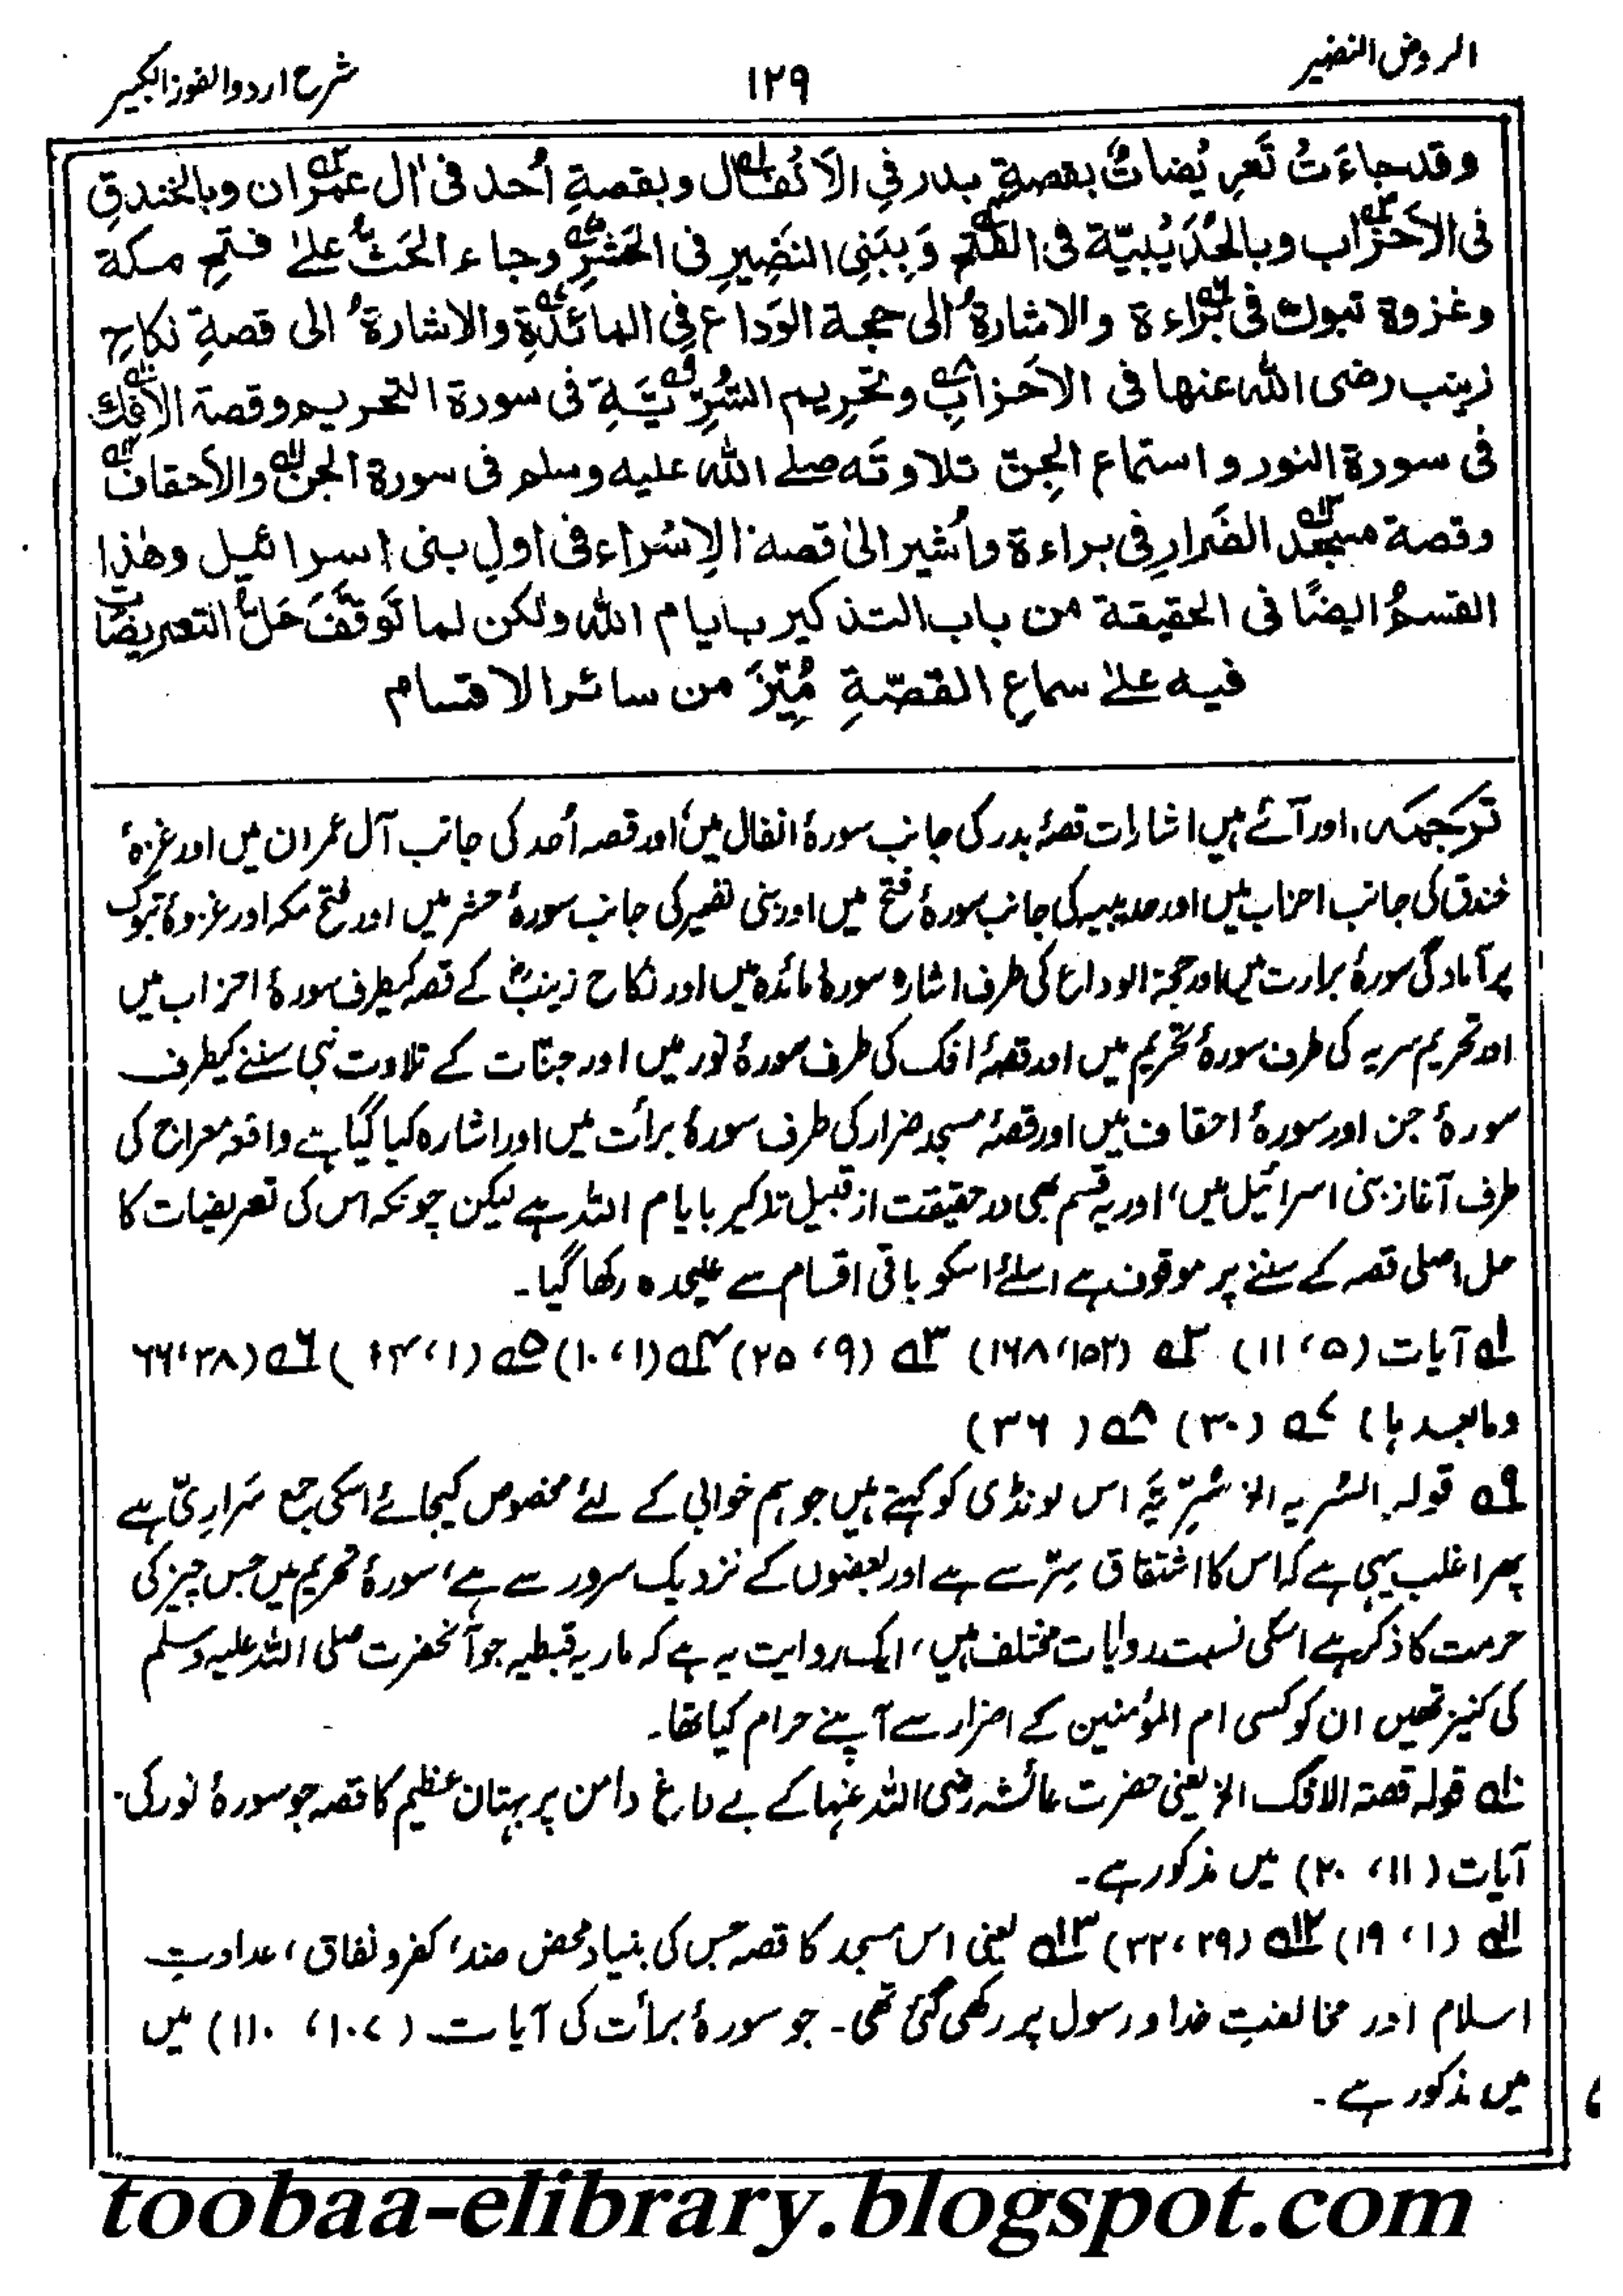 الروض النضیر
۱۲۹
شرح اردو الفوز الکبیر
وقد جاءَتْ تَعرِیْضاتٌ بقصةِ بدر فی الاَنْفَال۱ وبقصةِ اُحد فی اٰل عمران۲ وبالخندقِ
فی الاَحْزَاب۳ وبالحُدَیْبیّة فی الفتح۴ وَبِبَنِی النَضِیرِ فی الحَشْرِ۵ وجاء الحَثُّ علیٰ فتحِ مکة
وغزوة تبوك فی بَرَاءة۶ والاشارةُ الی حجة الوَداع فِی المائدةِ۷ والاشارةُ الی قصةِ نکاحِ
زینب رضی الله عنها فی الاَحزابِ۸ وتحرِیم السُّرِّیَّةِ۹ فی سورة التحریم وقصة الاِفك۱۰
فی سورة النور واستماع الجِن تلاوتَه صلے الله علیه وسلم فی سورة الجن۱۱ والاَحقاف۱۲
وقصة مسجد۱۳ الضَرارِ فی براءة واُشیر الیٰ قصة الاِسْراء فی اولِ بنی اسرائیل وهٰذا
القسمُ ایضًا فی الحقیقة من باب التذکیر بایام الله ولکن لما تَوَقَّفَ حَلُّ التعریضات
فیه علیٰ سماعِ القصّةِ مُیِّزَ من سائر الاقسام
تَرجمہ، اور آئے ہیں اشارات قصۂ بدر کی جانب سورۂ انفال میں اور قصہ اُحد کی جانب آل عمران میں اور غزوۂ
خندق کی جانب احزاب میں اور حدیبیہ کی جانب سورۂ فتح میں اور بنی نضیر کی جانب سورۂ حشر میں اور فتح مکہ اور غزوۂ تبوک
پر آمادگی سورۂ براءت میں اور حجۃ الوداع کی طرف اشارہ سورۂ مائدہ میں اور نکاح زینبؓ کے قصہ کیطرف سورۂ احزاب میں
اور تحریم سریہ کی طرف سورۂ تحریم میں اور قصۂ افک کی طرف سورۂ نور میں اور جنّات کے تلاوت نبی سننے کیطرف
سورۂ جن اور سورۂ احقاف میں اور قصۂ مسجد ضرار کی طرف سورۂ برأت میں اور اشارہ کیا گیا ہے واقعہ معراج کی
طرف آغاز بنی اسرائیل میں، اور یہ قسم بھی درحقیقت از قبیل تذکیر بایام اللہ ہے لیکن چونکہ اس کی تعریضات کا
حل اصلی قصہ کے سننے پر موقوف ہے اسلئے اسکو باقی اقسام سے علیحدہ رکھا گیا۔
۱ہ آیات (۵، ۱۱) ۲ہ (۱۵۲، ۱۶۸) ۳ہ (۹، ۲۵) ۴ہ (۱، ۱۰) ۵ہ (۱، ۱۴) ۶ہ (۳۸، ۶۶
ومابعدہا) ۷ہ (۳۰) ۸ہ (۳۶)
۹ہ قولہ السُریہ الخ سُرِّیَّہ اس لونڈی کو کہتے ہیں جو ہم خوابی کے لئے مخصوص کیجائے اسکی جمع سَرارِیّ ہے
پھر اغلب یہی ہے کہ اس کا اشتقاق سِرّ سے ہے اور بعضوں کے نزدیک سرور سے ہے، سورۂ تحریم میں جس چیز کی
حرمت کا ذکر ہے اسکی نسبت روایات مختلف ہیں، ایک روایت یہ ہے کہ ماریہ قبطیہ جو آنحضرت صلی اللہ علیہ وسلم
کی کنیز تھیں ان کو کسی ام المؤمنین کے اصرار سے آپنے حرام کیا تھا۔
۱۰ہ قولہ قصۃ الافک الخ یعنی حضرت عائشہ رضی اللہ عنہا کے بے داغ دامن پر بہتان عظیم کا قصہ جو سورۂ نور کی
آیات (۱۱، ۲۰) میں مذکور ہے۔
۱۱ہ (۱، ۱۹) ۱۲ہ (۲۹، ۳۲) ۱۳ہ یعنی اس مسجد کا قصہ جس کی بنیاد محض ضد، کفر و نفاق، عداوتِ
اسلام اور مخالفتِ خدا و رسول پر رکھی گئی تھی۔ جو سورۂ برأت کی آیات (۱۰۷، ۱۱۰) میں
میں مذکور ہے۔
toobaa-elibrary.blogspot.com